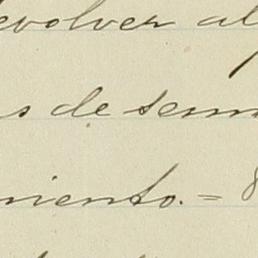 evolver al
s de senn
niento. = 8